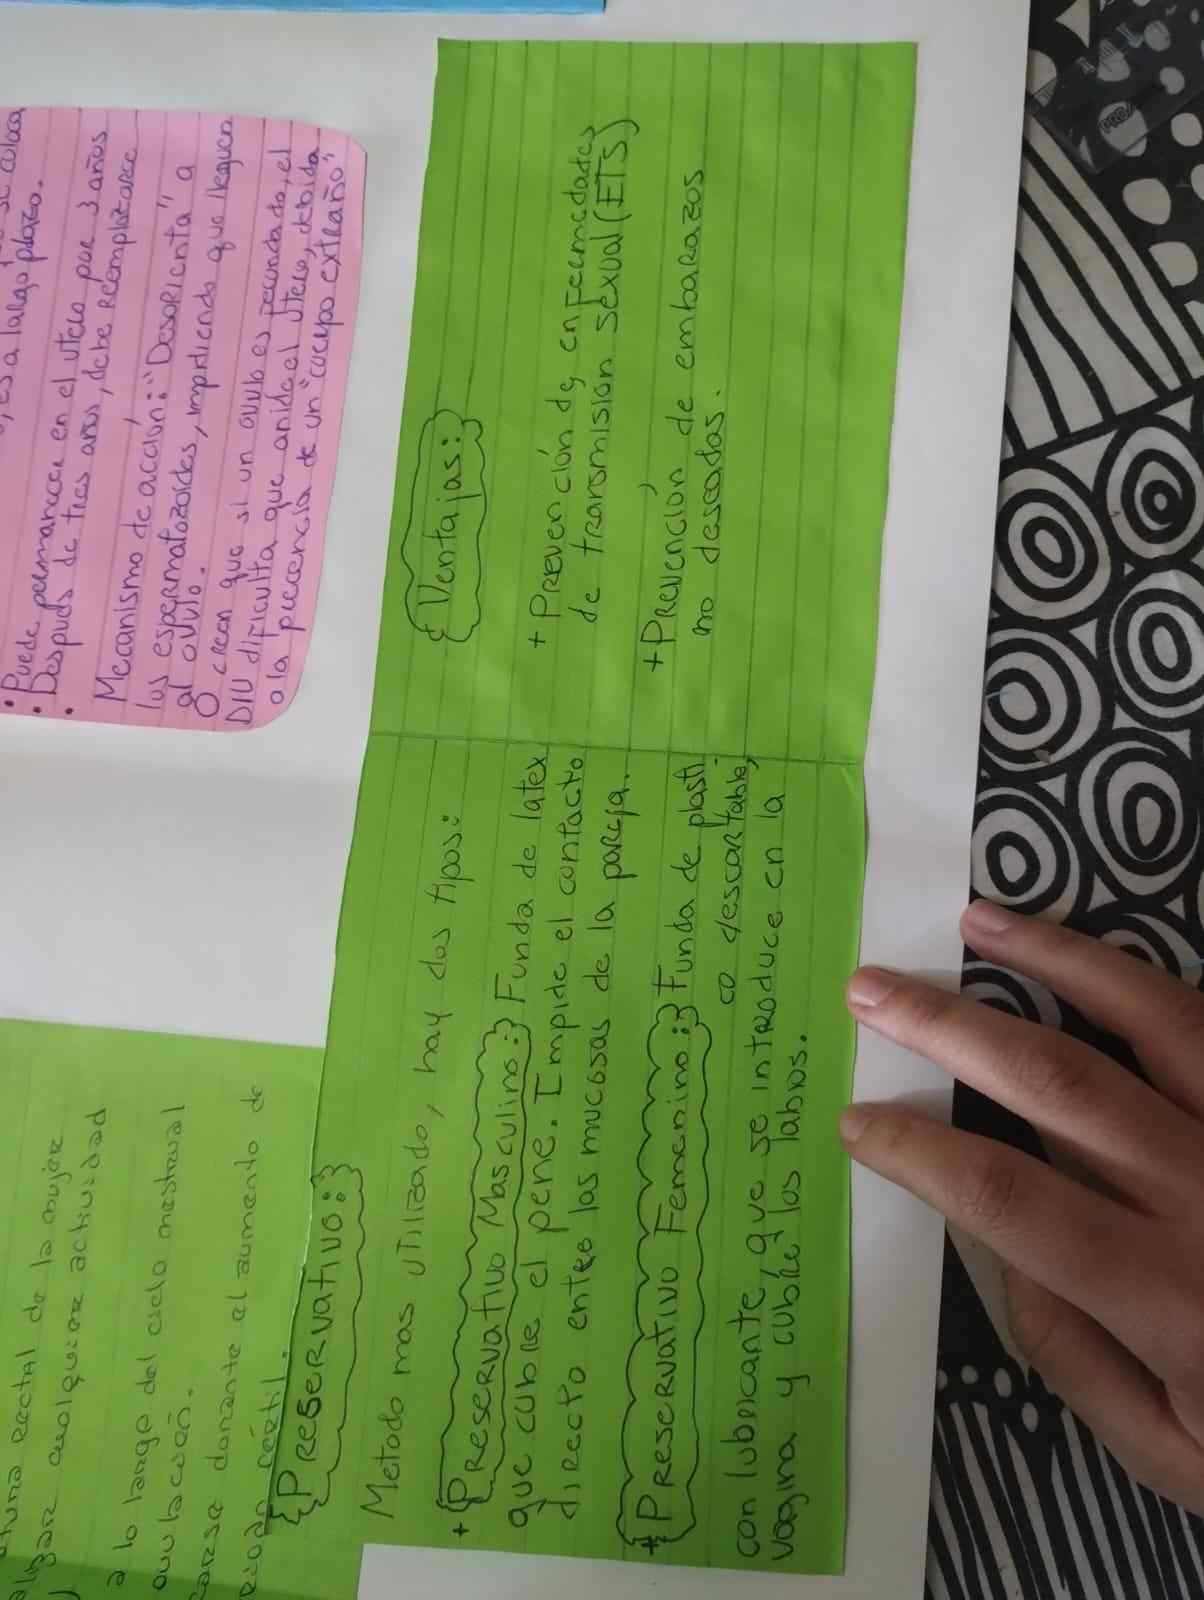 largo plazo.
• Puede permanecer en el utero por 3 años
• Después de tres años, debe reemplazarse
Mecanismo de acción: "Desorienta" a
los espermatozoides, impidiendo que lleguen
al ovulo.
O creen que si un ovulo es fecundado, el
DIU dificulta que anide el utero, debido
a la precencia de un "cuerpo extraño".
rectal de la mujer
cualquier actividad
a lo largo del ciclo mestrual
durante el aumento de
fértil.
{Preservativo:}
Metodo mas utilizado, hay dos tipos:
+ {Preservativo Masculino:} Funda de latex
que cubre el pene. Impide el contacto
directo entre las mucosas de la pareja.
+ {Preservativo Femenino:} Funda de plasti-
co descartable,
con lubricante, que se introduce en la
vagina y cubre los labios.
{Ventajas:}
+ Prevención de enfermedades
de transmisión sexual (ETS)
+ Prevención de embarazos
no deseados.